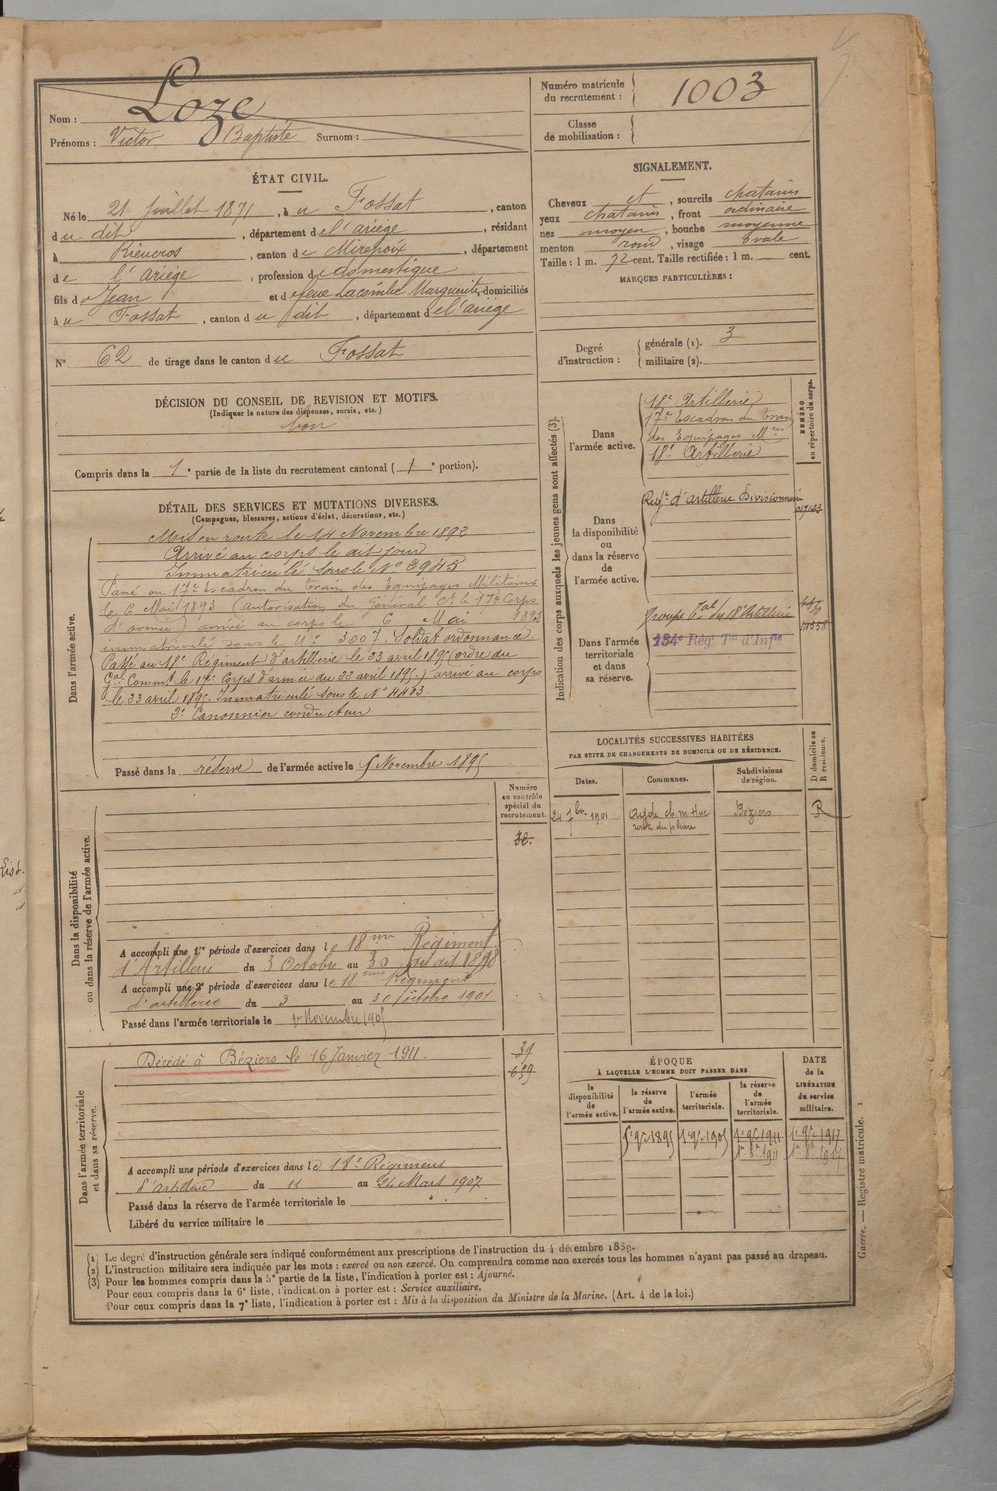 Nom : Loze
Prénoms : Victor Baptiste Surnom :
Numéro matricule du recrutement : 1003
Classe de mobilisation :
ÉTAT CIVIL.
Né le 21 Juillet 1871, à u Fossat, canton
d u dit, département de l'ariège, résidant
à Rieucros, canton de Mirepoix, département
de l'ariège, profession de domestique
fils de Jean et de feue Lacombe Marguerite, domiciliés
à u Fossat, canton d u dit, département de l'ariège
N° 62 de tirage dans le canton du Fossat
SIGNALEMENT.
Cheveux et, sourcils chatains
yeux chatains, front ordinaire
nez moyen, bouche moyenne
menton rond, visage ovale
Taille : 1 m. 72 cent. Taille rectifiée : 1 m. cent.
MARQUES PARTICULIÈRES :
Degré d'instruction : générale (1). 3
militaire (2).
DÉCISION DU CONSEIL DE REVISION ET MOTIFS.
(Indiquer la nature des dispenses, sursis, etc.)
bon
Compris dans la 1e partie de la liste du recrutement cantonal (1e portion).
DÉTAIL DES SERVICES ET MUTATIONS DIVERSES.
(Campagnes, blessures, actions d'éclat, décorations, etc.)
Dans l'armée active.
Mis en route le 14 Novembre 1892
Arrivé au corps le dit jour
Immatriculé sous le N° 3945
Passé au 17e Escadron du Train des Equipages Militaires
le 6 Mai 1893 (autorisation du Général Ct le 17e Corps
d'armée) arrivé au corps le 6 Mai 1893
immatriculé sous le N° 3007. Soldat ordonnance
Passé au 18e Régiment d'artillerie le 23 avril 1895 (ordre du
Gal Commt le 17e Corps d'armée du 22 avril 1895.) arrivé au corps
le 23 avril 1895. Immatriculé sous le N° 4483
2e Canonnier conducteur
Passé dans la réserve de l'armée active le 1 Novembre 1895
Indication des corps auxquels les jeunes gens sont affectés (3).
NUMÉRO au répertoire du corps.
Dans l'armée active.
18e Artillerie
17e Escadron du Train
des Equipages Mres
18e Artillerie
Dans la disponibilité ou dans la réserve de l'armée active.
Régt d'artillerie Divisionnaire
Dans l'armée territoriale et dans sa réserve.
Groupe Tal du 18e Artillerie
134e Rég. Tal d'Infie
LOCALITÉS SUCCESSIVES HABITÉES
PAR SUITE DE CHANGEMENTS DE DOMICILE OU DE RÉSIDENCE.
Dates. Communes. Subdivisions de région. D domicile ou R résidence.
24 7bre 1901 Béziers R
Dans la disponibilité ou dans la réserve de l'armée active.
Numéro au contrôle spécial du recrutement.
38.
A accompli une 1re période d'exercices dans le 18me Régiment
d'Artillerie du 3 Octobre au 30 dudit 1898
A accompli une 2e période d'exercices dans le 18eme Régiment
d'artillerie du 3 au 30 octobre 1901
Passé dans l'armée territoriale le 1er Novembre 1905
Dans l'armée territoriale et dans sa réserve.
Décédé à Béziers le 16 Janvier 1911.
39
639
A accompli une période d'exercices dans le 18e Régiment
d'Artillerie du 11 au 24 Mars 1907
Passé dans la réserve de l'armée territoriale le
Libéré du service militaire le
ÉPOQUE
À LAQUELLE L'HOMME DOIT PASSER DANS
la disponibilité de l'armée active. la réserve de l'armée active. l'armée territoriale. la réserve de l'armée territoriale.
DATE de la LIBÉRATION du service militaire.
1er 9bre 1895 1er 9bre 1905 1er 9bre 1911 1er 9bre 1917
1er 8bre 1911 1er 8bre 1917
(1) Le degré d'instruction générale sera indiqué conformément aux prescriptions de l'instruction du 4 décembre 1889.
(2) L'instruction militaire sera indiquée par les mots : exercé ou non exercé. On comprendra comme non exercés tous les hommes n'ayant pas passé au drapeau.
(3) Pour les hommes compris dans la 5e partie de la liste, l'indication à porter est : Ajourné.
Pour ceux compris dans la 6e liste, l'indication à porter est : Service auxiliaire.
Pour ceux compris dans la 7e liste, l'indication à porter est : Mis à la disposition du Ministre de la Marine. (Art. 4 de la loi.)
Guerre. — Registre matricule. 1